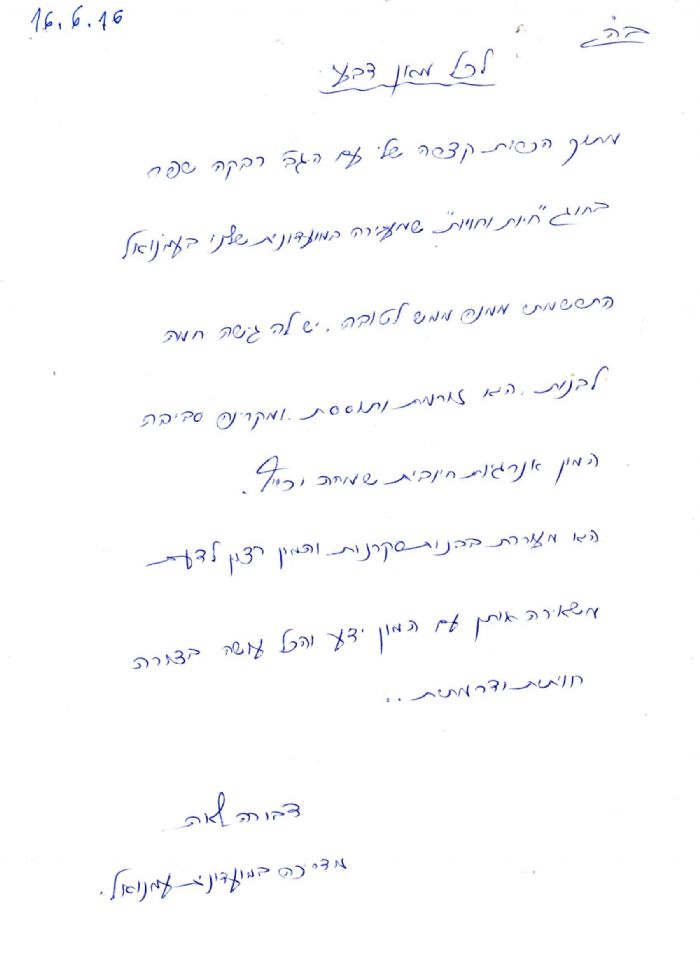 16.6.16
בה
לכל מאן דבעי
מתוך הכרות קצרה שלי עם הגב' רבקה שפר
בחוג "חיות וחוויות" שמעבירה במועדונית שלנו בעמנואל
התרשמתי ממנה ממש לטובה. יש לה גישה חמה
לבנות. היא זורמת ותוססת. ומקרינה סביבה
המון אנרגיות חיובית שמחה וכיף.
היא מעוררת בבנות סקרנות והמון רצון לדעת
משאירה אותן עם המון ידע והכל עושה בצורה
חויתית ודרמתית..
דבורה
מדריכה במועדונית עמנואל.